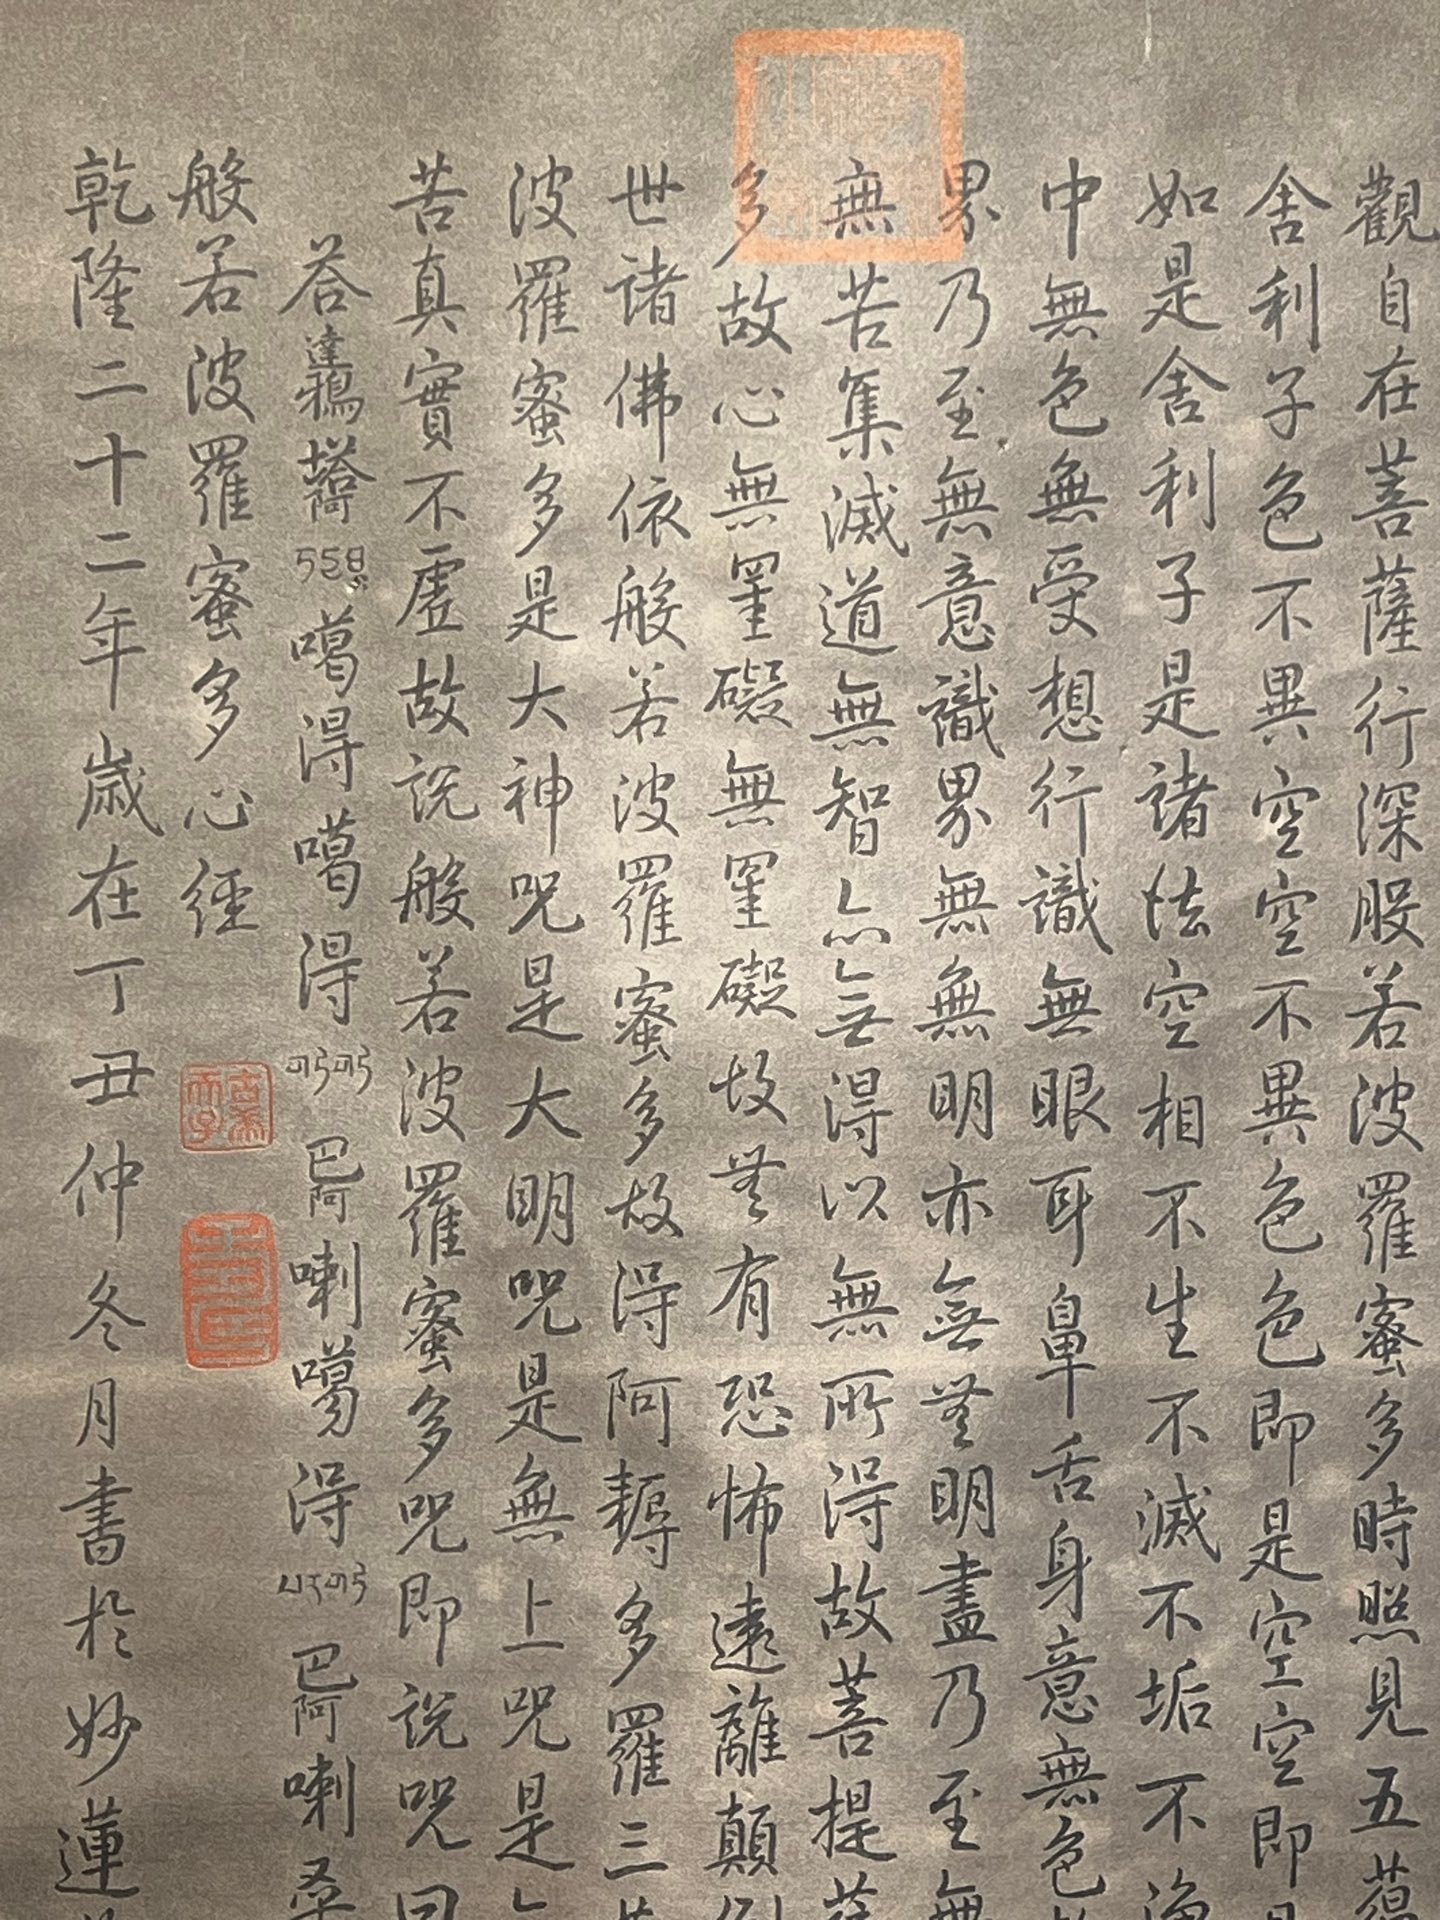 觀自在菩薩行深般若波羅蜜多時照見五蘊
舍利子色不異空空不異色色即是空空即是
如是舍利子是諸法空相不生不滅不垢不淨
中無色無受想行識無眼耳鼻舌身意無色
界乃至無意識界無無明亦無無明盡乃至無
無苦集滅道無智亦無得以無所得故菩提薩
多故心無罣礙無罣礙故無有恐怖遠離顛倒
世諸佛依般若波羅蜜多故得阿耨多羅三
波羅蜜多是大神咒是大明咒是無上咒是
苦真實不虛故說般若波羅蜜多咒即說咒曰
答達鴉塔阿噶得噶得巴阿喇噶得巴阿喇桑
般若波羅蜜多心經
乾隆二十二年歲在丁丑仲冬月書於妙蓮